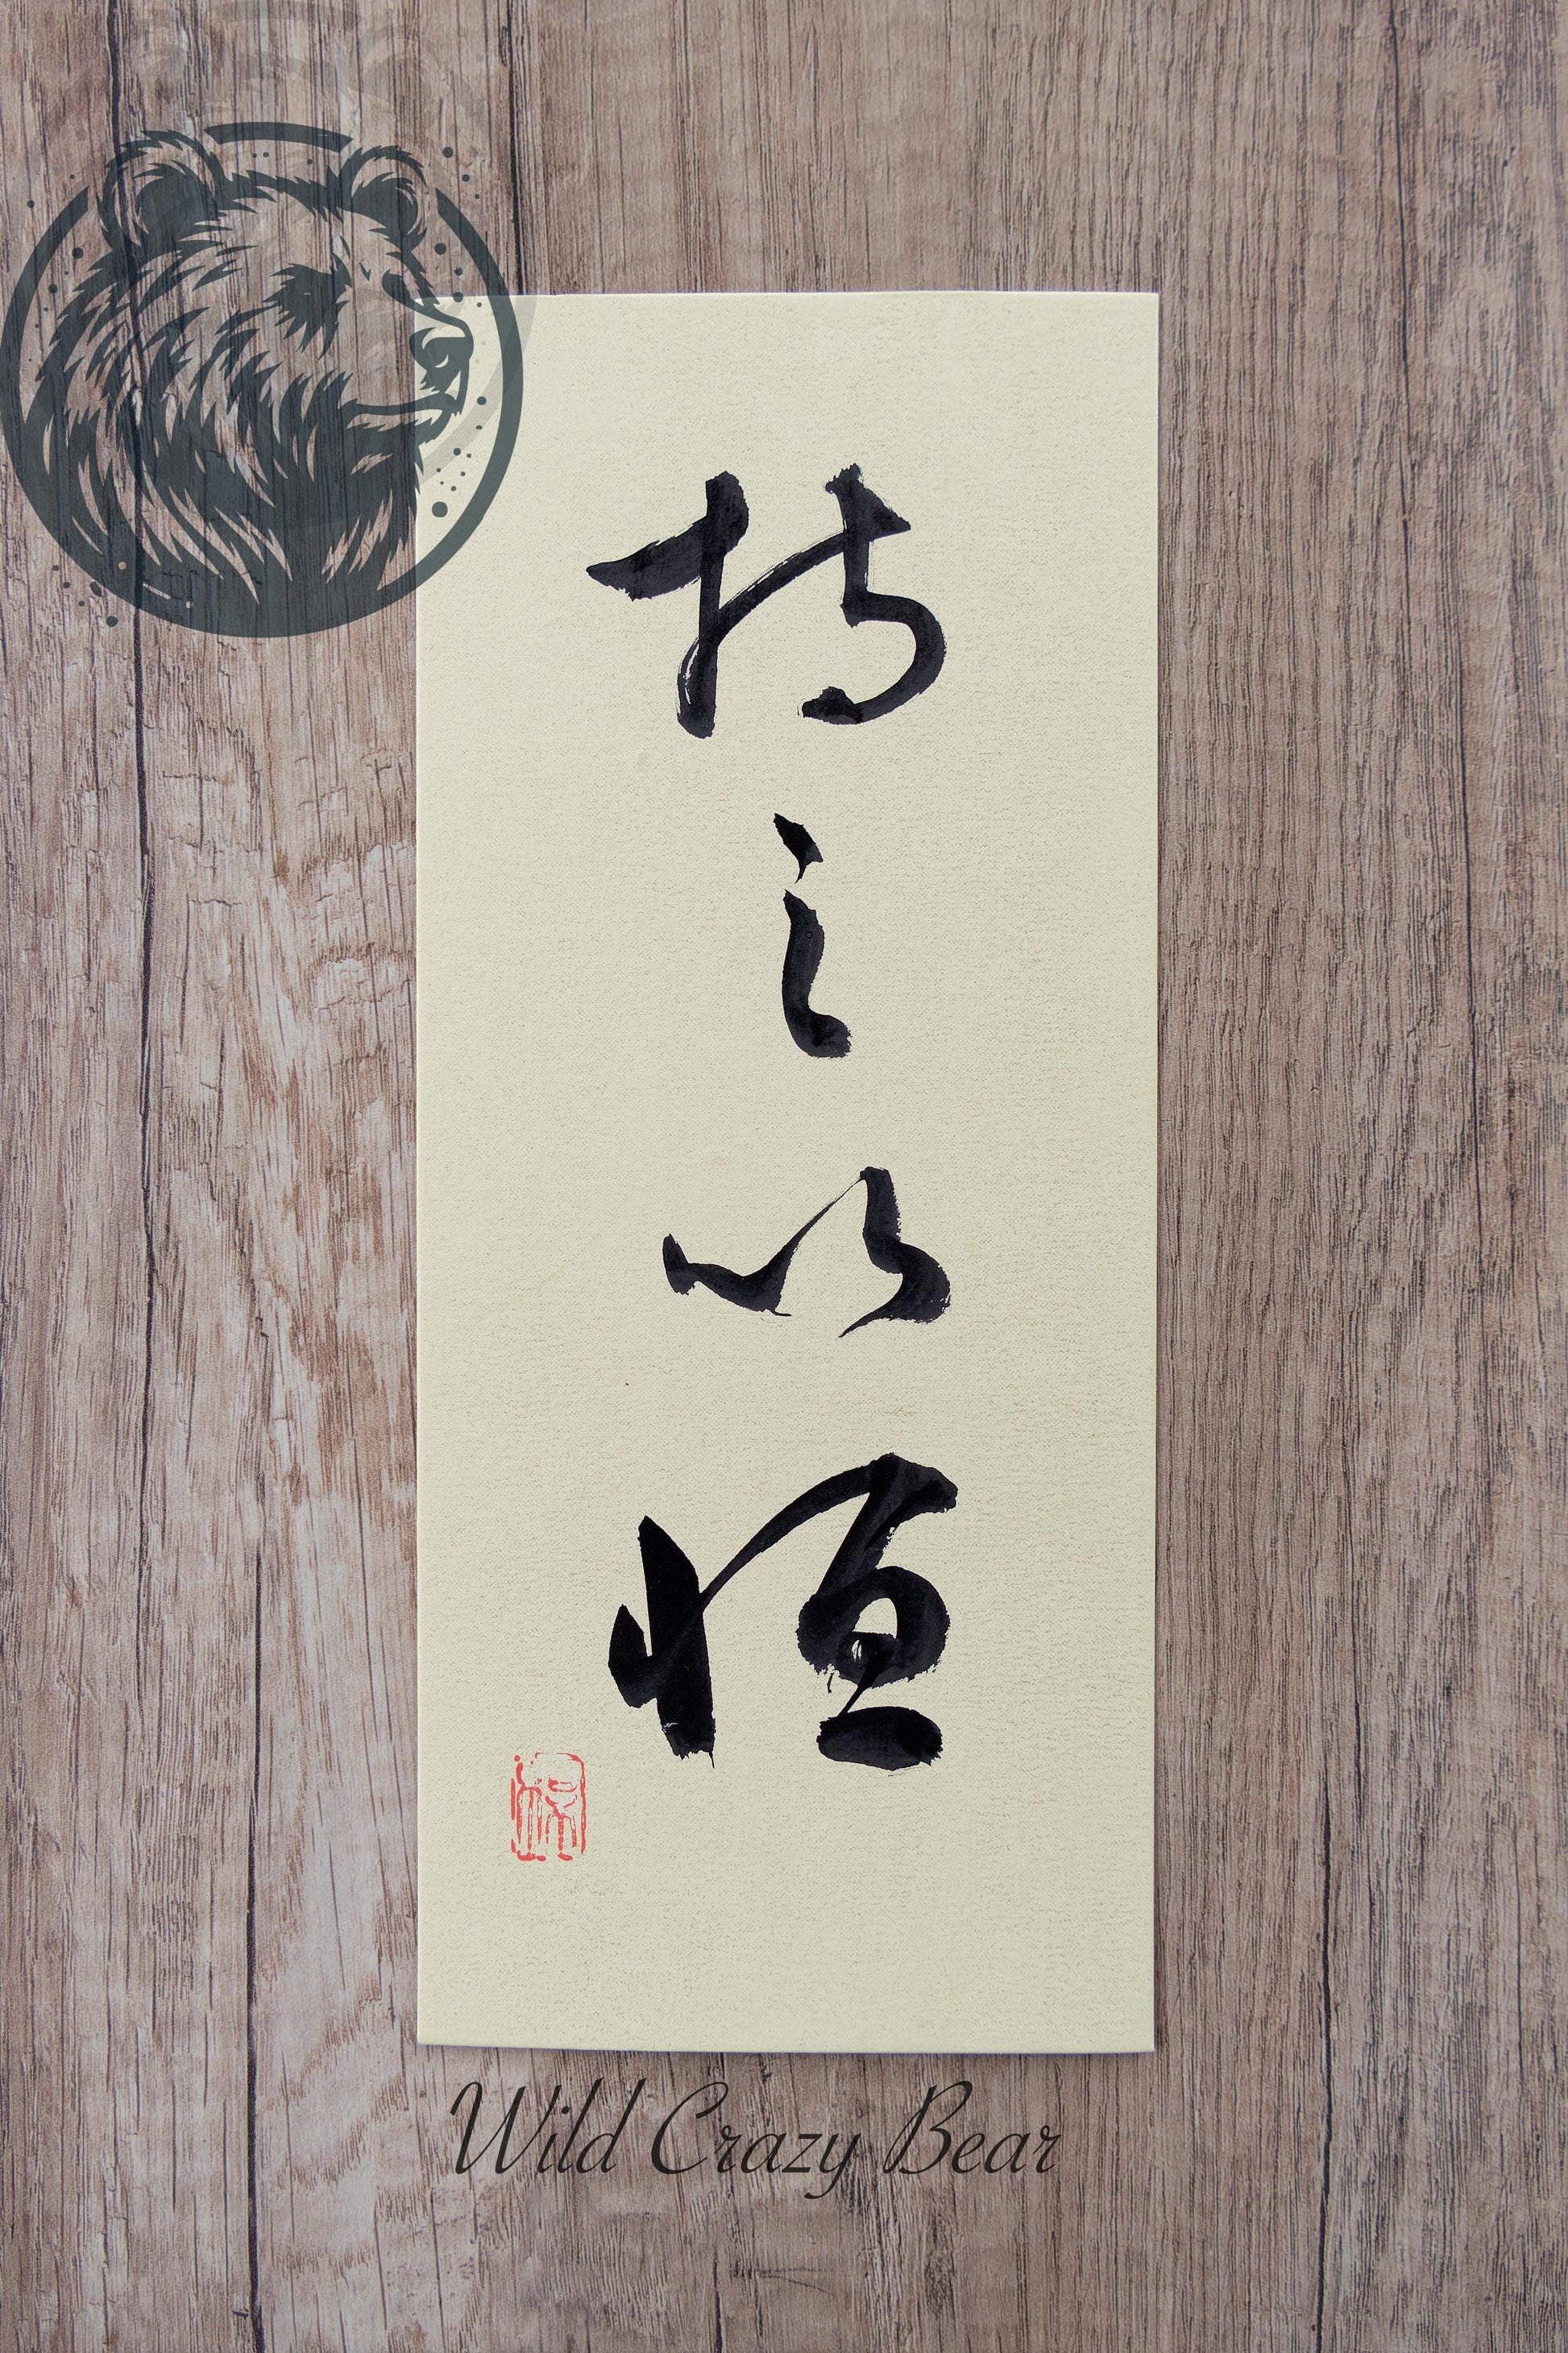 持之以恆
Wild Crazy Bear